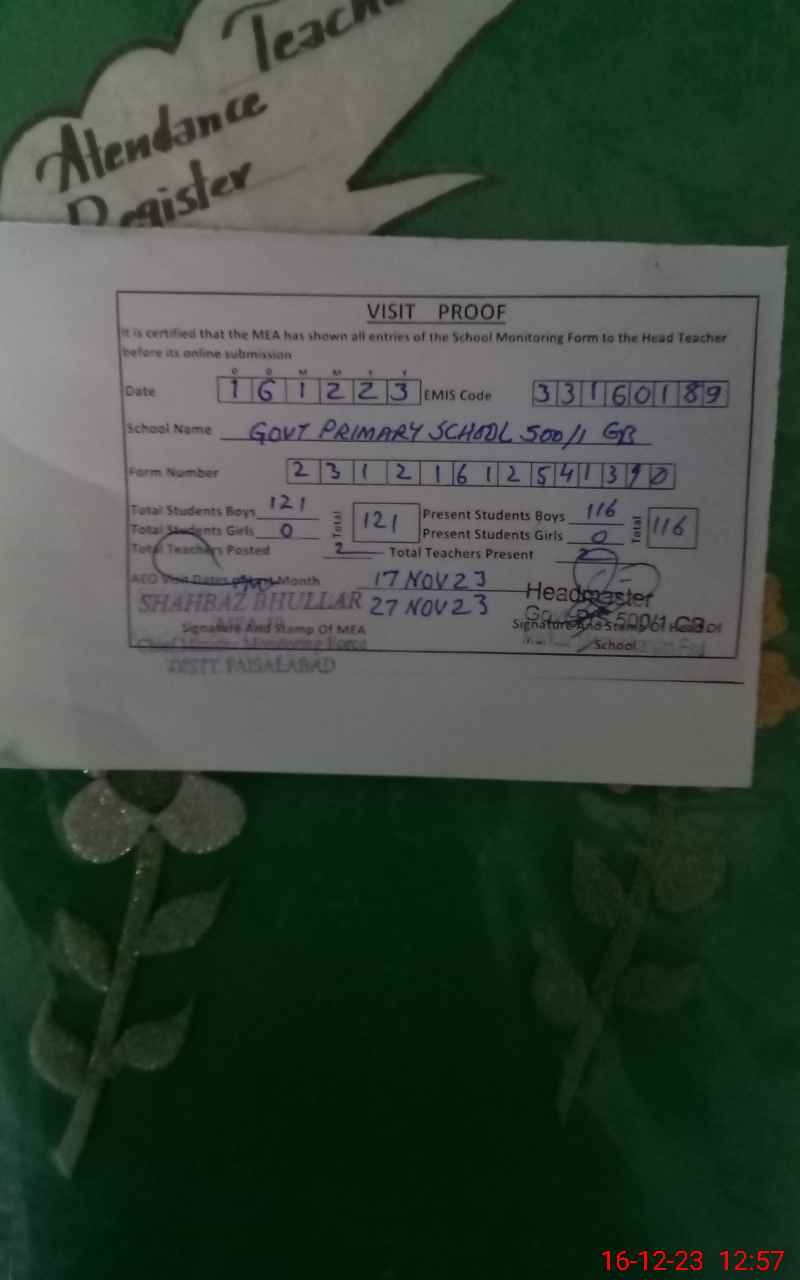 Teach
Atendance
Register
VISIT PROOF
It is certified that the MEA has shown all entries of the School Monitoring Form to the Head Teacher
before its online submission
D D M M Y Y
Date 1 6 1 2 2 3 EMIS Code 3 3 1 6 0 1 8 9
School Name GOVT PRIMARY SCHOOL 500/1 GB
Form Number 2 3 1 2 1 6 1 2 5 4 1 3 9 0
Total Students Boys 121 Total 121 Present Students Boys 116 Total 116
Total Students Girls 0 Present Students Girls 0
Total Teachers Posted 2 Total Teachers Present 2
AEO Visit Dates Month 17 NOV 23
SHAHBAZ BHULLAR 27 NOV 23 Headmaster
500/1 GB
Signature And Stamp Of MEA Signature And Stamp Of Head Of
School
Monitoring Force
DISTT. FAISALABAD
16-12-23 12:57